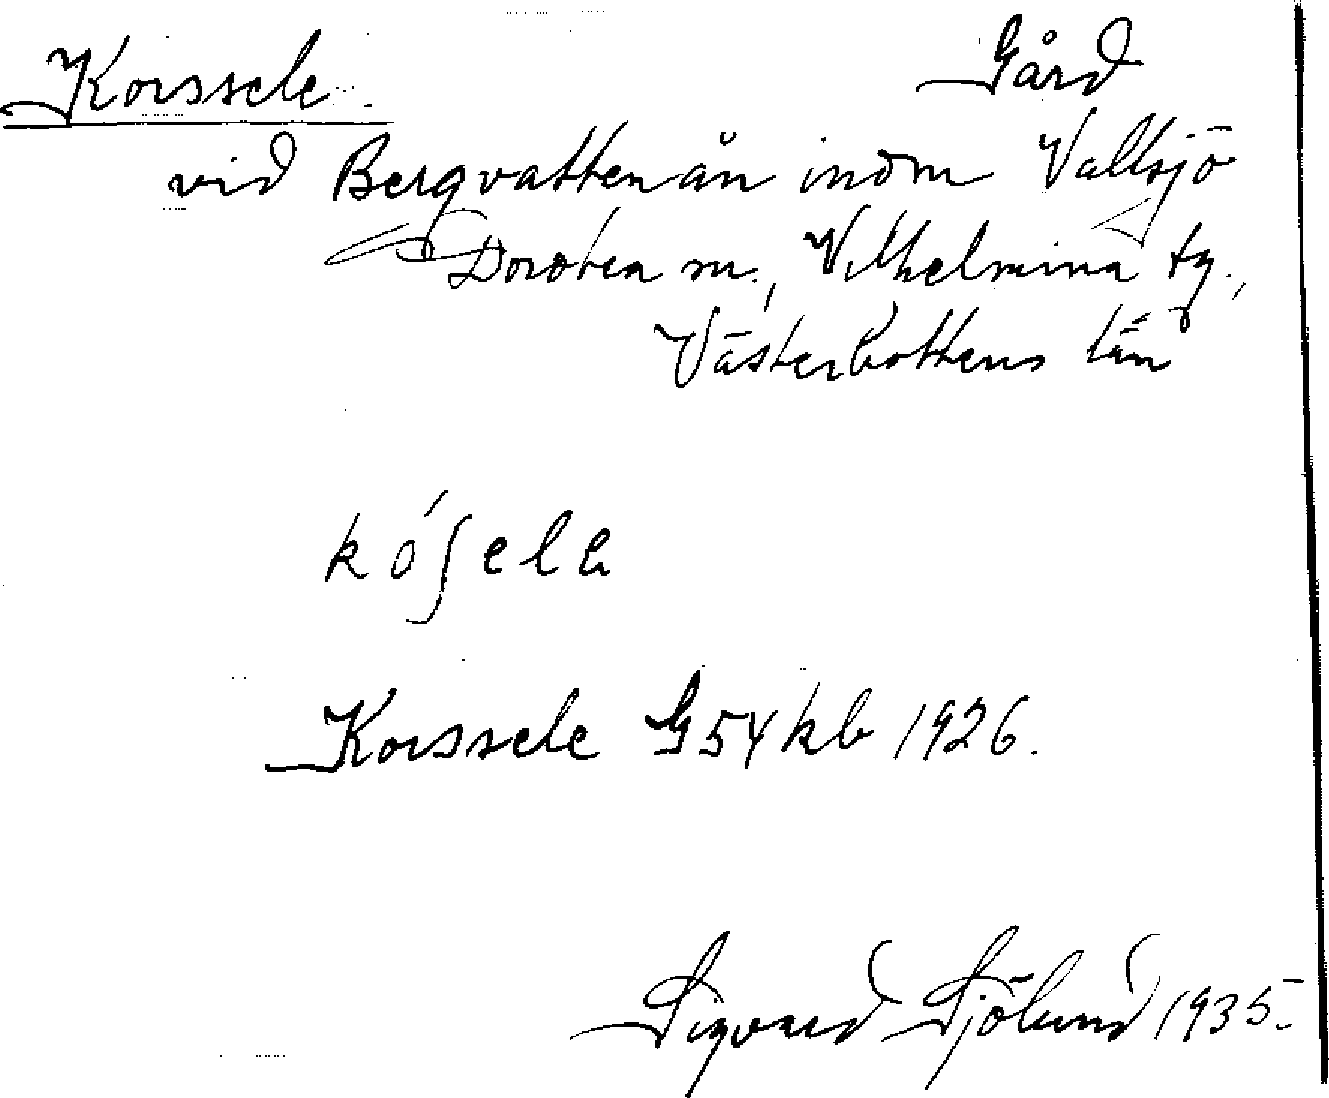 Korssele. Gård
vid Bergvattenån inom Valtsjö
Dorotea sn., Vilhelmina tg.,
Västerbottens län
kóʃele
Korssele G 54 kb 1926.
Sigvard Sjölund 1935.